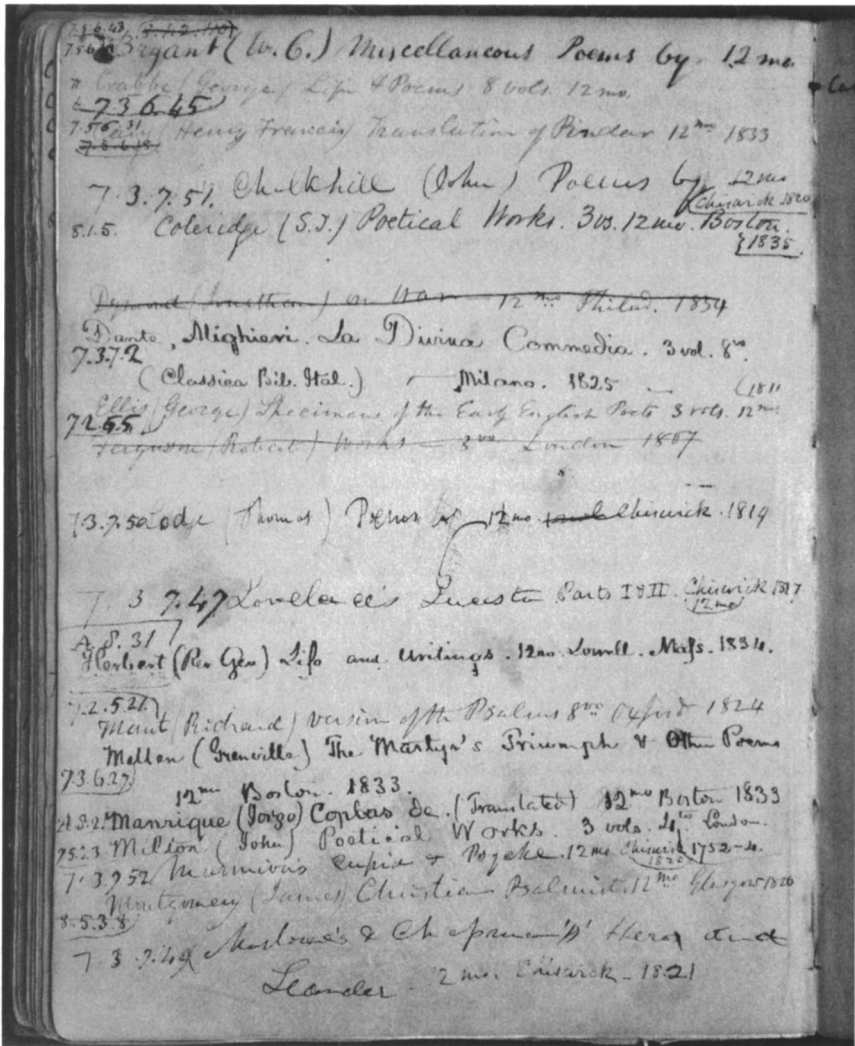 7.5.6.43
Bryant (W. C.) Miscellaneous Poems by. 12 mo.
Crabbe (George) Life & Poems 8 vols. 12 mo.
7 3 6.45
7.5.6.31
Cary (Henry Francis) Translation of Pindar 12mo 1833
7.3.7.51. Chalkhill (John) Poems by 12 mo
Chiswick 1820
8.1.5. Coleridge (S.T.) Poetical Works. 3 vs. 12 mo. Boston.
1835
Dymond (Jonathan) on War 12mo Philad. 1834
Dante, Alighieri. La Divina Commedia. 3 vol. 8vo
7.3.7.2
(Classica Bib. Ital.) Milano. 1825
(1811
Ellis (George) Specimens of the Early English Poets 3 vols. 12mo
7.2.5.5
Ferguson (Robert) Works London 1807
7.3.7.50 Lodge (Thomas) Poems by 12 mo Chiswick. 1819
7. 3 7.47 Lovelace's Lucasta Parts I & II. Chiswick 1817
12 mo
A.8.31
Herbert (Rev Geo) Life and Writings. 12mo. Lowell. Mass. 1834.
7.2.5.21
Mant (Richard) version of the Psalms 8vo Oxford 1824
Mellen (Grenville) The Martyr's Triumph & Other Poems
7.3.6.27
12mo Boston. 1833.
Manrique (Jorge) Coplas de. (Translated) 12mo Boston 1833
7.5.2.3 Milton (John) Poetical Works. 3 vols. 4to London.
1752-
7.3.7.52 Marmion's Cupid & Psyche. 12mo Chiswick
1820
Montgomery (James) Christian Psalmist. 12mo Glasgow 1826
8.5.3.8
7.3.7.49 Marlowe's & Chapman's Hero and
Leander 12 mo. Chiswick - 1821